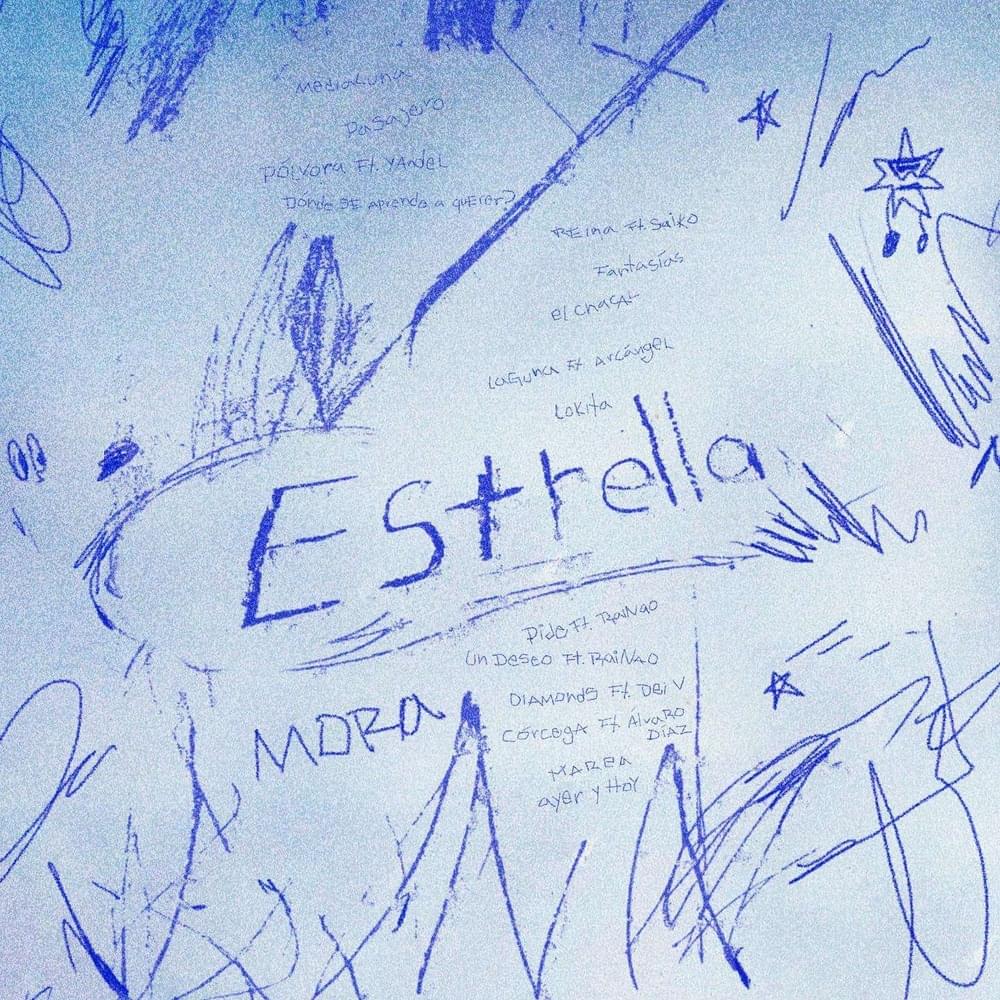 MediaLuna
Pasajero
Pólvora Ft. YAndeL
Donde SE aprende a quErer?
REina Ft. Saiko
Fantasías
el ChacAL
LaGuna Ft Arcángel
Lokita
Estrella
Pide Ft. RaiNao
Un Deseo Ft. RaiNAO
MORa
DIAMONDS Ft. DEI V
CórcegA Ft ÁlvaRO
DíAZ
MAREA
ayEr y HoY